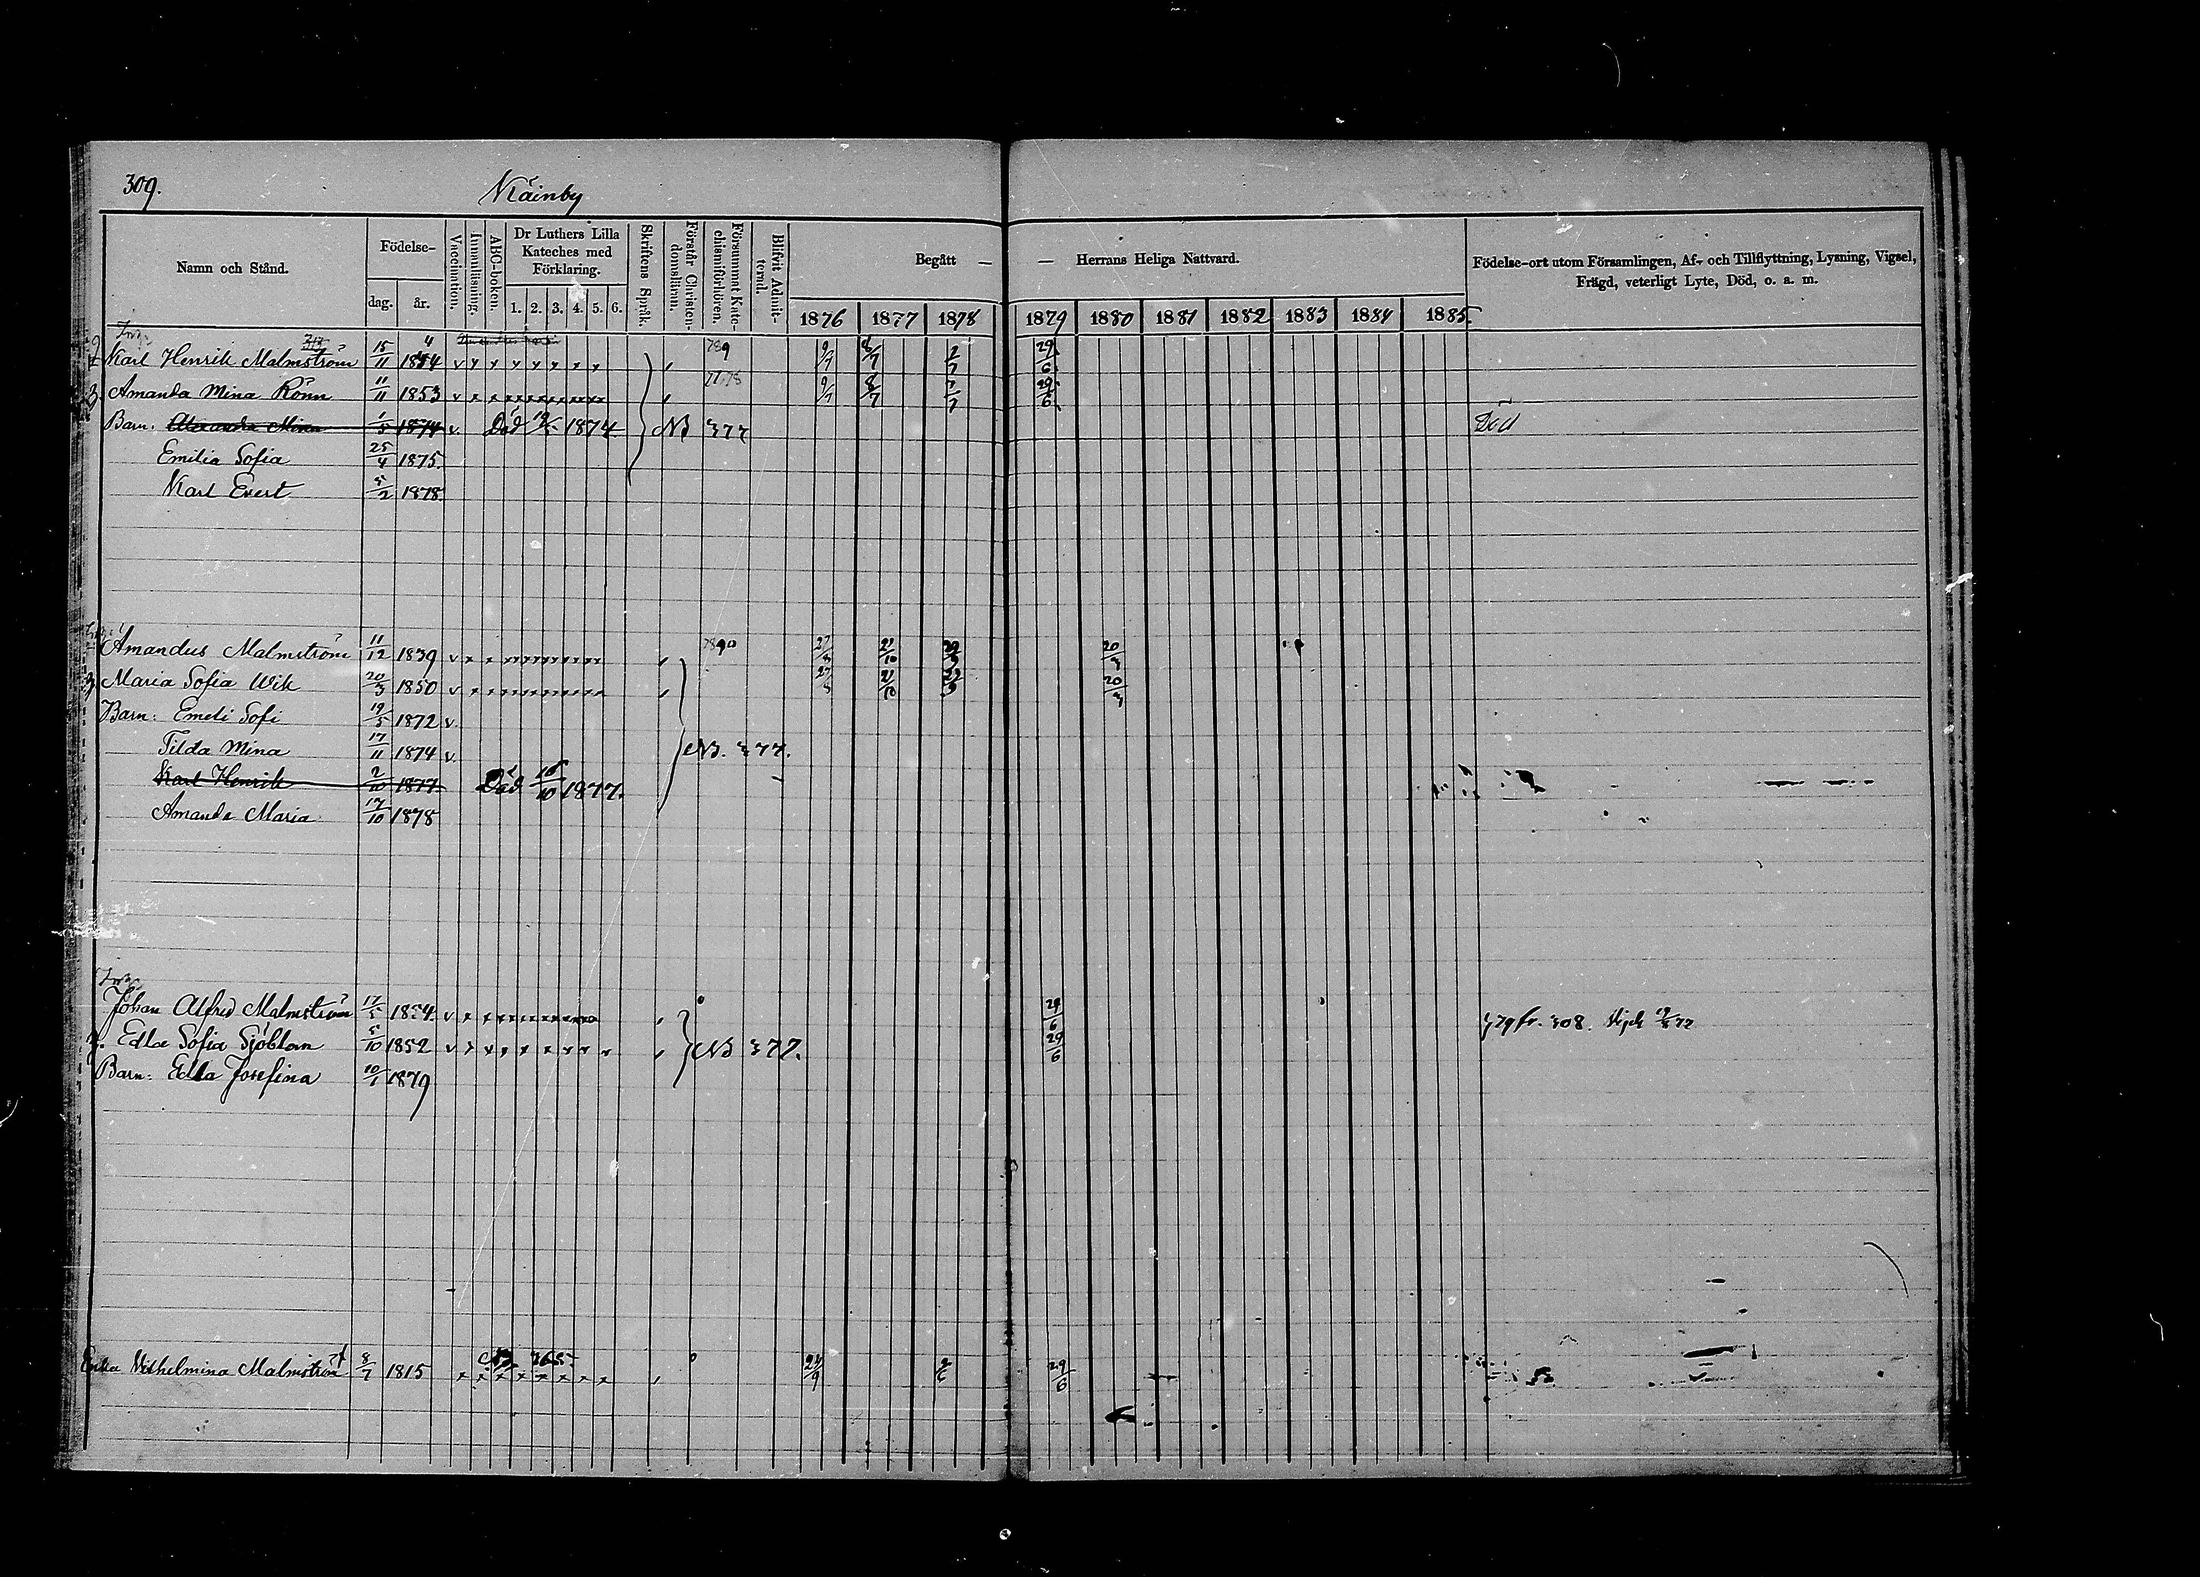 309.
Käinby
Namn och Stånd.
Födelse-
dag.
år.
Vaccination.
Innanläsning.
ABC-boken.
Dr Luthers Lilla Kateches med Förklaring.
1. 2. 3. 4. 5. 6.
Skriftens Språk.
Förstår Christendomsläran.
Försummat Katechismiförhören.
Blifvit Admitterad.
Begått — — Herrans Heliga Nattvard.
1876 1877 1878 1879 1880 1881 1882 1883 1884 1885.
Födelse-ort utom Församlingen, Af- och Tillflyttning, Lysning, Vigsel,
Frägd, veterligt Lyte, Död, o. a. m.
Karl Henrik Malmström 15/11 9/7 8/7 2/7 29/6
Amanda Mina Rönn 11/11 1853 v 77,78 9/7 8/7 2/7 29/6
Barn: Alexandra Mina 1/5 1874 v. Död 1874. NB 377 Död
Emilia Sofia 25/4 1875.
Karl Evert 5/2 1878
Amandus Malmström 11/12 1839 v 27/8 21/10 29/9 20/9
Maria Sofia Wik 20/3 1850 v 27/8 21/10 29/9 20/9
Barn: Emeli Sofi 19/5 1872 v
Tilda Mina 17/11 1874 v NB. 377.
Karl Henrik 2/10 1877 Död 16/10 1877.
Amanda Maria 17/10 1878
Johan Alfred Malmström 17/5 1854 v 29/6 79 fr. 308.
Edla Sofia Sjöblom 5/10 1852 v NB 377. 29/6
Barn: Edla Josefina 10/1 1879
NB 365
Vilhelmina Malmström 8/7 1815 24/9 2/6 29/6